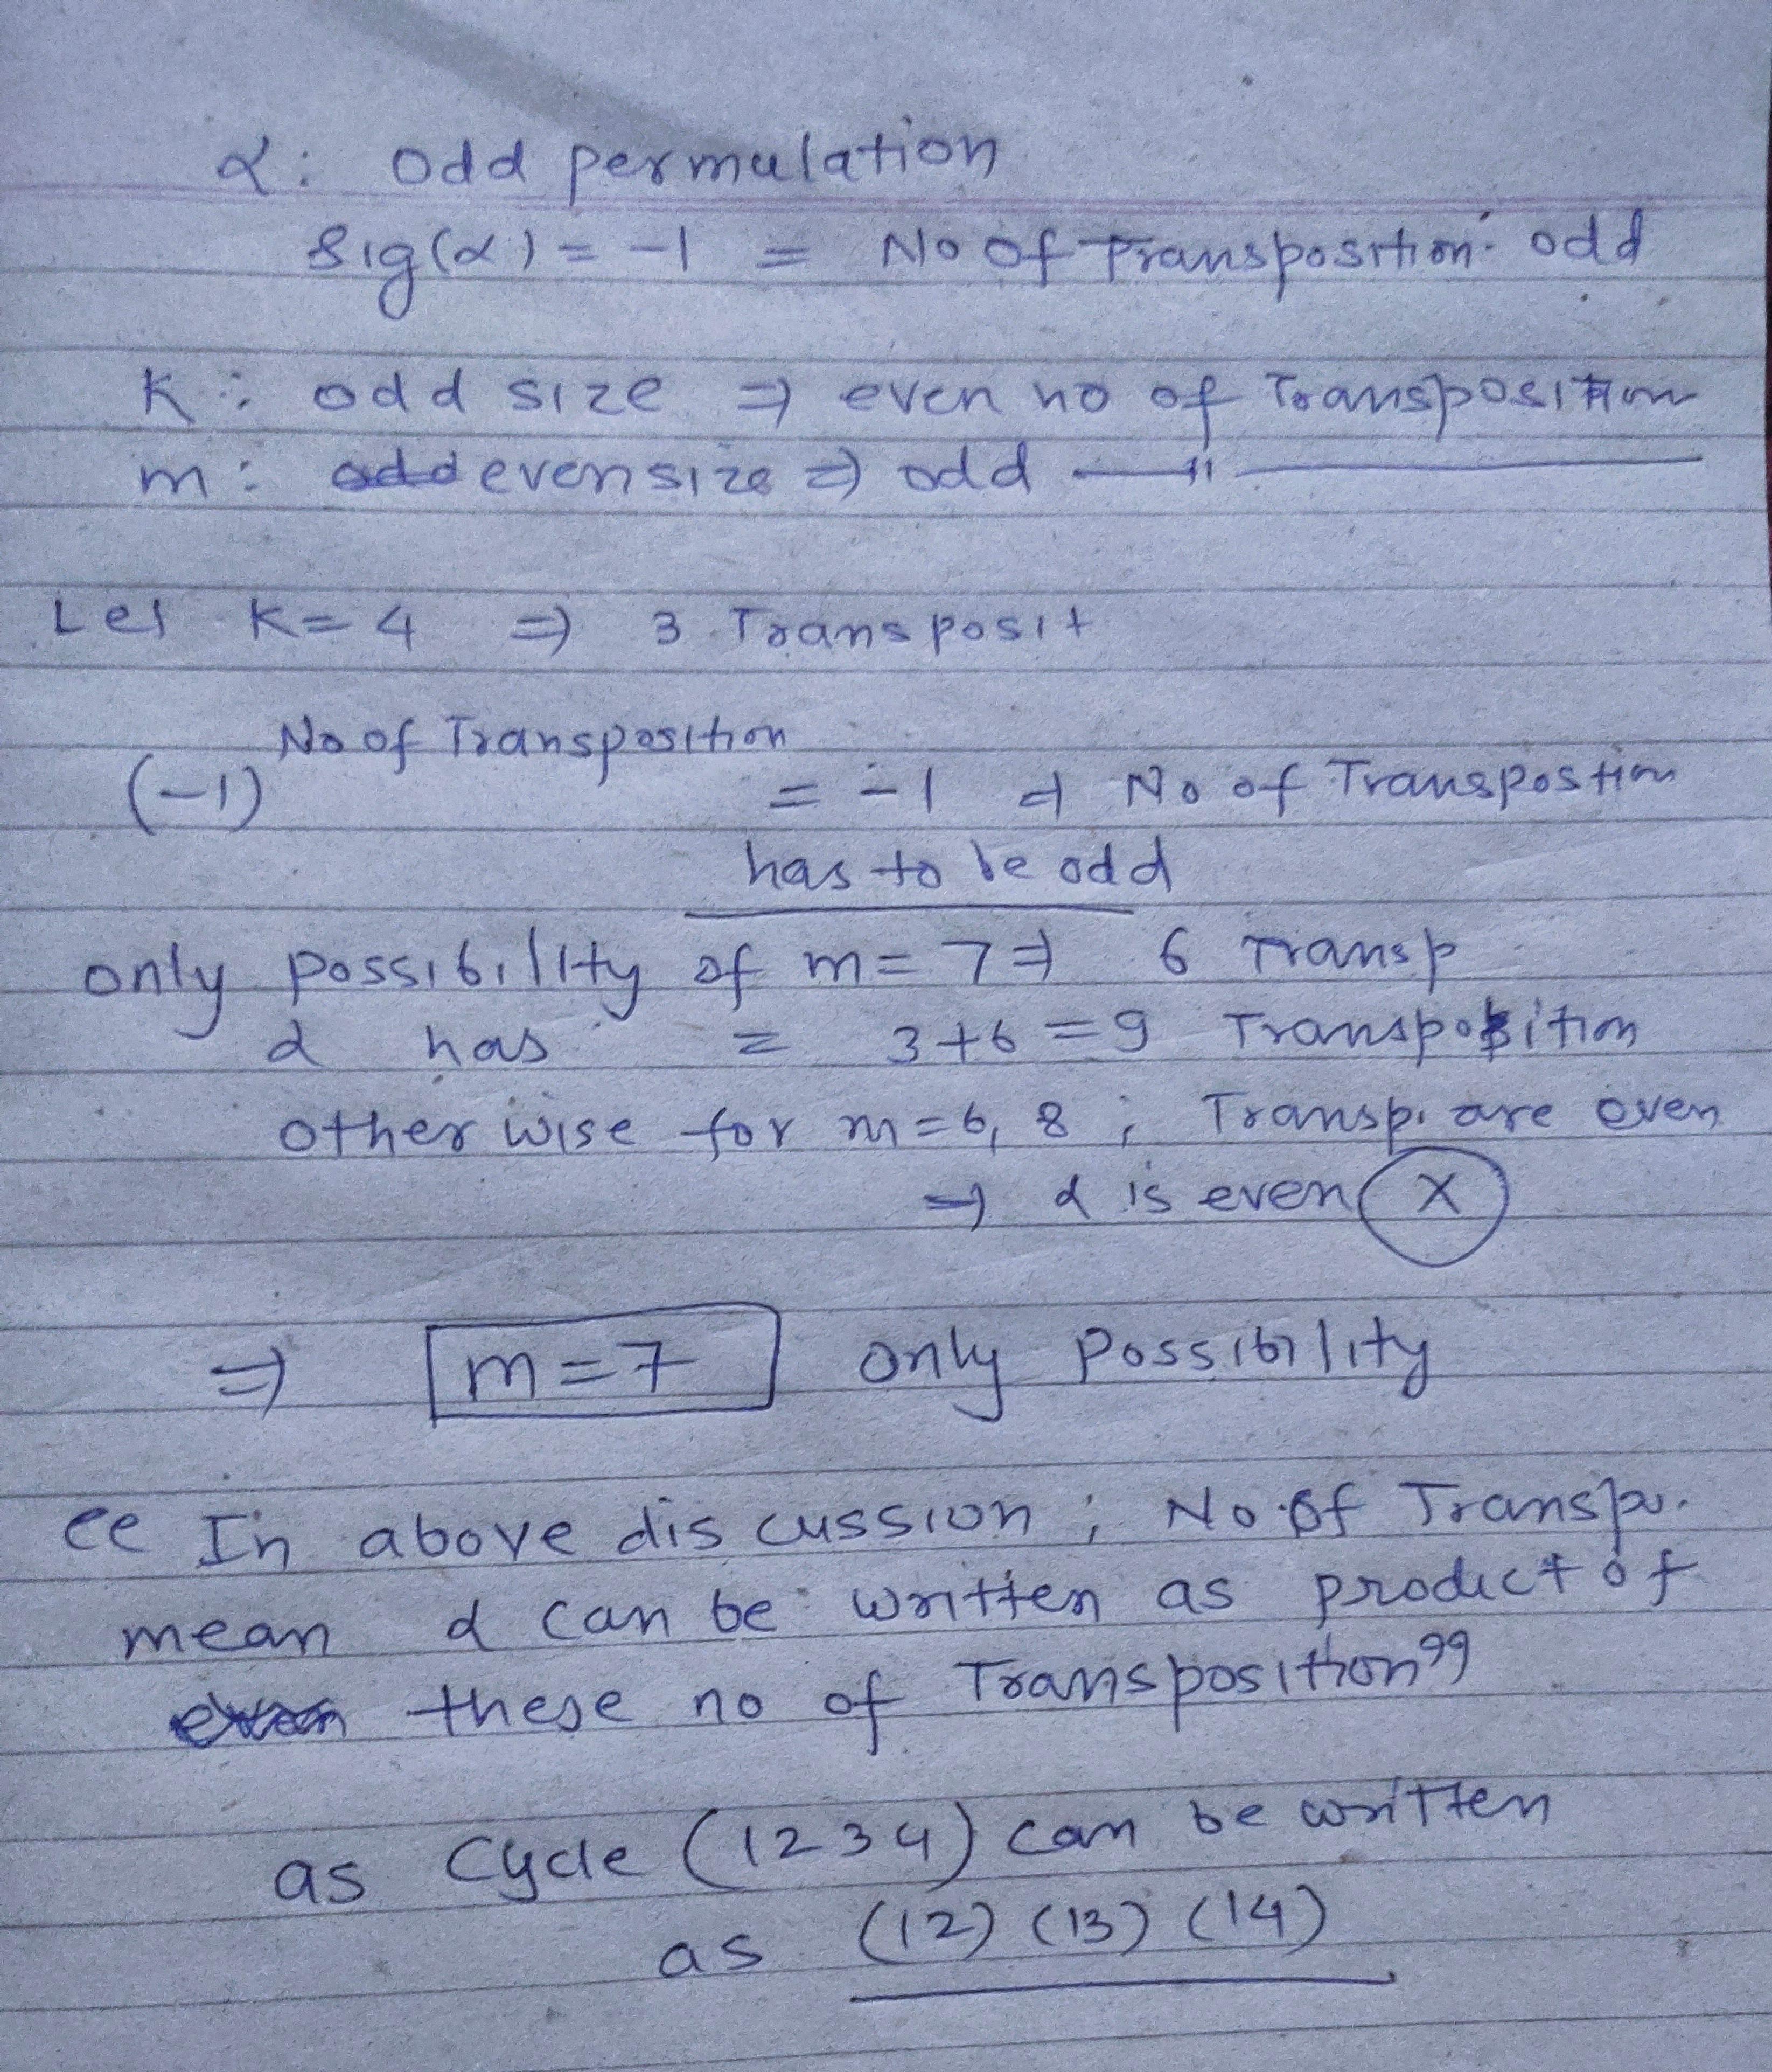 α: odd permulation
Sig(α) = -1 = No of Transposition odd
K: odd size ⇒ even no of Transposition
m: evensize ⇒ odd —"—
Let K=4 ⇒ 3 Transposit
(-1)^No of Transposition = -1 ⇒ No of Transpostion
has to be odd
only possibility of m=7 ⇒ 6 Transp
α has = 3+6=9 Transposition
otherwise for m=6, 8 ; Transp. are even
⇒ α is even X
⇒ m=7 only possibility
"In above discussion ; No of Transp.
mean α can be written as product of
these no of Transposition"
as Cycle (1234) can be written
as (12) (13) (14)